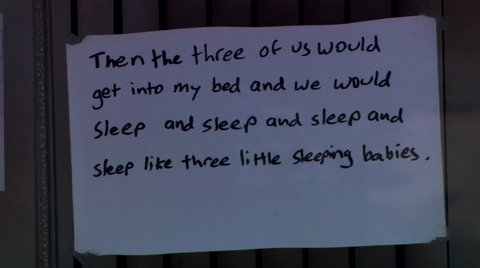 Then the three of us would
get into my bed and we would
sleep and sleep and sleep and
sleep like three little sleeping babies.